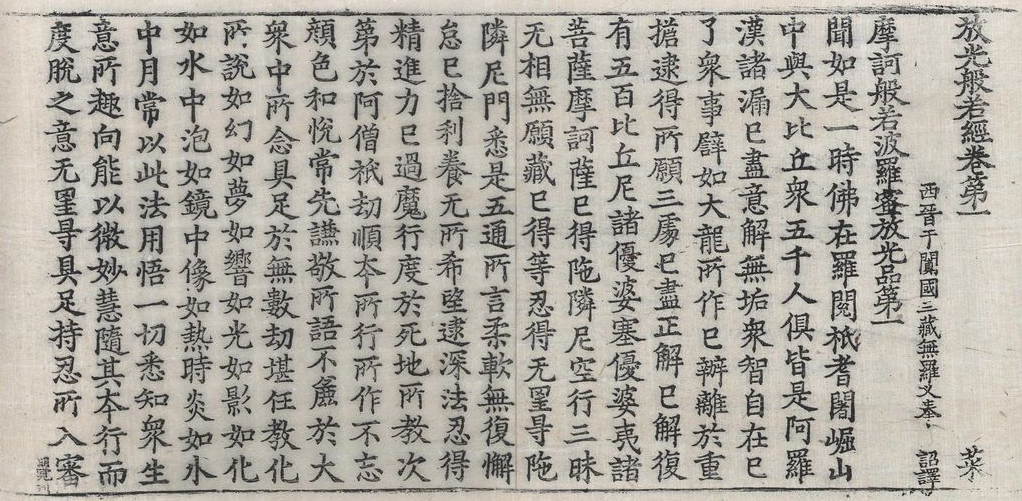 放光般若經卷第一
西晉于闐國三藏無羅叉奉 詔譯 菜
摩訶般若波羅蜜放光品第一
聞如是一時佛在羅閱祇耆闍崛山
中與大比丘眾五千人俱皆是阿羅
漢諸漏已盡意解無垢眾智自在已
了眾事譬如大龍所作已辦離於重
擔逮得所願三處已盡正解已解復
有五百比丘尼諸優婆塞優婆夷諸
菩薩摩訶薩已得陁隣尼空行三昧
无相無願藏已得等忍得无罣㝵陁
隣尼門悉是五通所言柔軟無復懈
怠已捨利養无所希望逮深法忍得
精進力已過魔行度於死地所教次
第於阿僧祇劫順夲所行所作不忘
顏色和悅常先謙敬所語不麁於大
眾中所念具足於無數劫堪任教化
所說如幻如夢如響如光如影如化
如水中泡如鏡中像如熱時炎如水
中月常以此法用悟一切悉知眾生
意所趣向能以微妙慧隨其夲行而
度脫之意无罣㝵具足持忍所入審